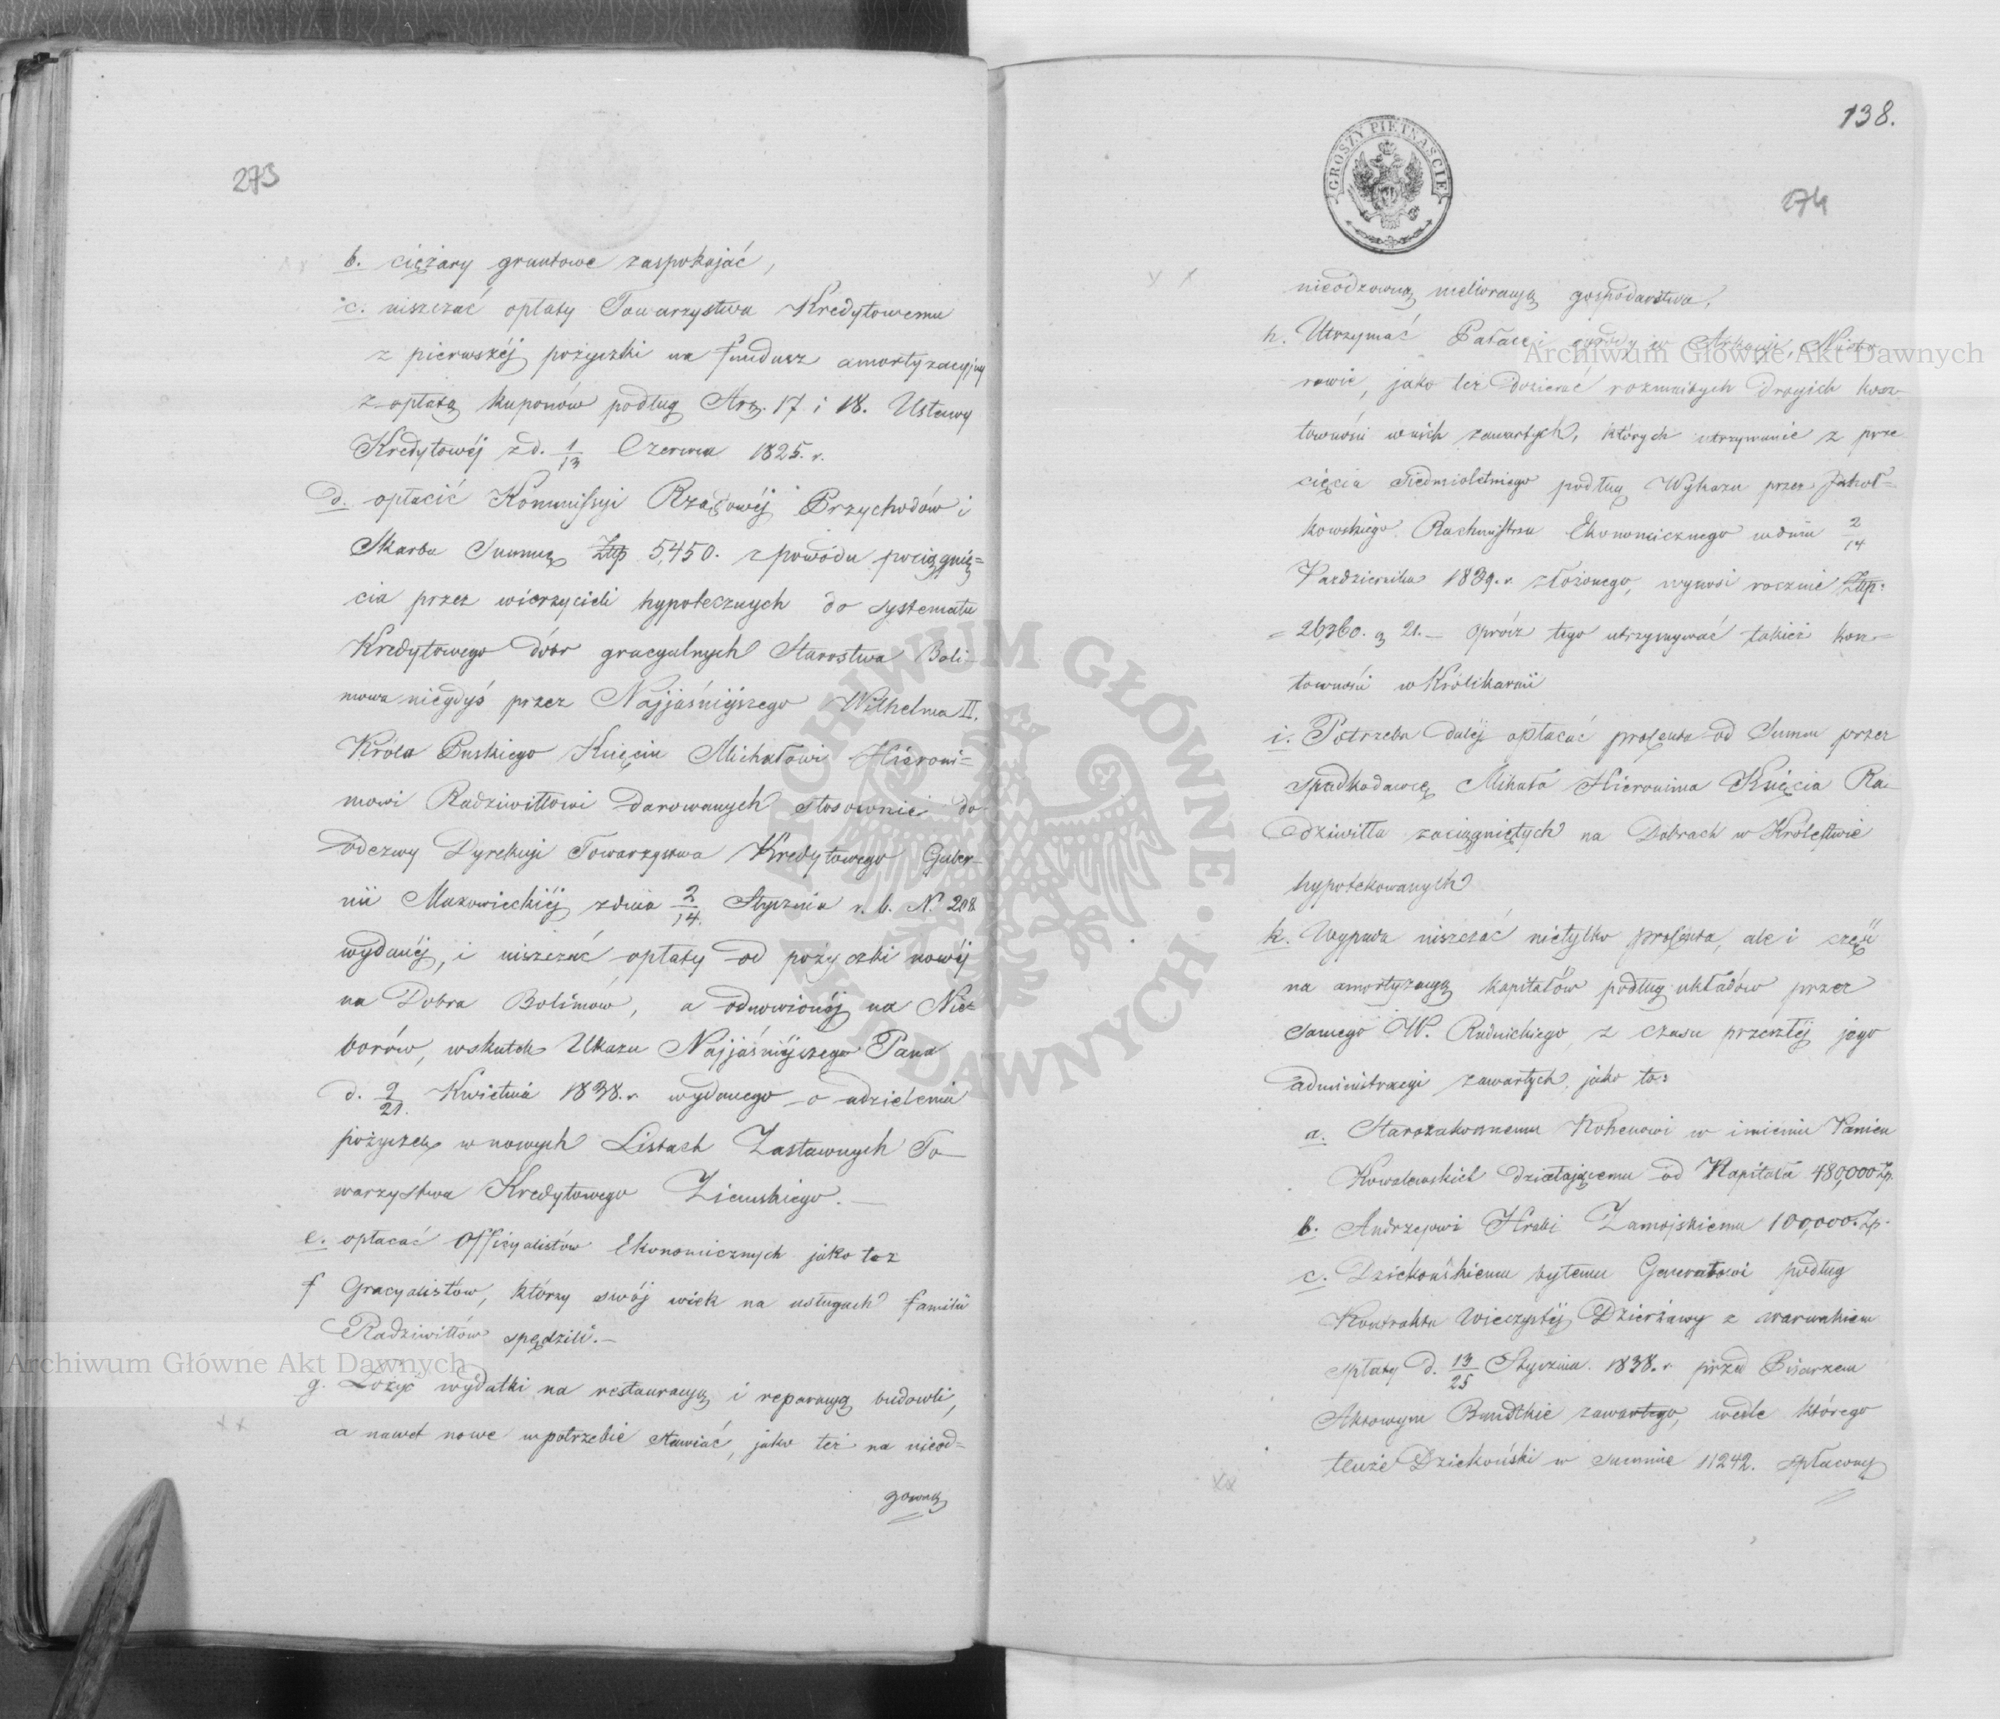 273
b. ciężary gruntowe zaspokajać,
c. uiszczać opłaty Towarzystwa Kredytowemu
z pierwszéj pożyczki na fundusz amortyzacyjny
z opłatą kuponów podług Art. 17 i 18. Ustawy
Kredytowéj z d. 1/13 Czerwca 1825. r.
d. opłacić Kommissyi Rządowéj Przychodów i
Skarbu Summę Złp 5,450. z powodu pociągnię=
cia przez wierzycieli hypotecznych do systematu
Kredytowego dóbr gracyalnych Starostwa Boli-
mowa niegdyś przez Najjaśniejszego Wilhelma II.
Króla Pruskiego Księciu Michałowi Hieroni=
mowi Radziwiłłowi darowanych stosownie do
odezwy Dyrekcyi Towarzystwa Kredytowego Guber-
nii Mazowieckiéj z dnia 2/14. Stycznia r. b. N. 208
wydanéj, i uiszczać opłaty od pożyczki nowéj
na Dobra Bolimów, a odnowionéj na Nie=
borów, wskutek Ukazu Najjaśniejszego Pana
d. 9/21. Kwietnia 1838. r. wydanego o udzieleniu
pożyczek w nowych Listach Zastawnych To-
warzystwa Kredytowego Ziemskiego. —
e. opłacać Officyalistów Ekonomicznych jako też
f Gracyalistów, którzy swój wiek na usługach familii
Radziwiłłów spędzili. —
g. Łożyć wydatki na restauracyą i reparacyą budowli,
a nawet nowe w potrzebie stawiać, jako też na nieod=
zowną
138.
GROSZY PIETNAŚCIE
274
nieodzowną melioracyą gospodarstwa.
h. Utrzymać Pałace i ogrody w Arkadyi, Niebo-
rowie, jako też dozierać rozmaitych drogich kosz-
towności w nich zawartych, których utrzymanie z prze
cięcia siedmioletniego podług Wykazu przez
kowskiego Rachmistrza Ekonomicznego w dniu 2/14
Października 1839. r. złożonego, wynosi rocznie Złp:
= 26360. g 21. — oprócz tego utrzymywać takież kosz-
towności w Królikarni
i. Potrzeba daléj opłacać procenta od Summ przez
spadkodawcę Michała Hieronima Księcia Ra-
dziwiłła zaciągniętych na Dobrach w Królestwie
hypotekowanych
k. Wypada uiszczać nietylko procenta, ale i części
na amortyzacyą kapitałów podług układów przez
samego W. Rudnickiego z czasu przeszłéj jego
administracyi zawartych, jako to:
a. Starozakonnemu Kohenowi w imieniu Panien
Kowalewskich działającemu od Kapitału 480,000 Zp.
b. Andrzejowi Hrabi Zamojskiemu 100,000. Zp.
c. Dziekońskiemu bytemu Generałowi podług
Kontraktu Wieczystéj Dzierżawy z warunkiem
spłaty d. 13/25 Stycznia. 1838. r. przed Pisarzem
Aktowym Bandtkie zawartego, wedle którego
tenże Dziekoński w summie 11242. spłacony
ARCHIWUM GŁÓWNE AKT DAWNYCH
Archiwum Główne Akt Dawnych
Archiwum Główne Akt Dawnych